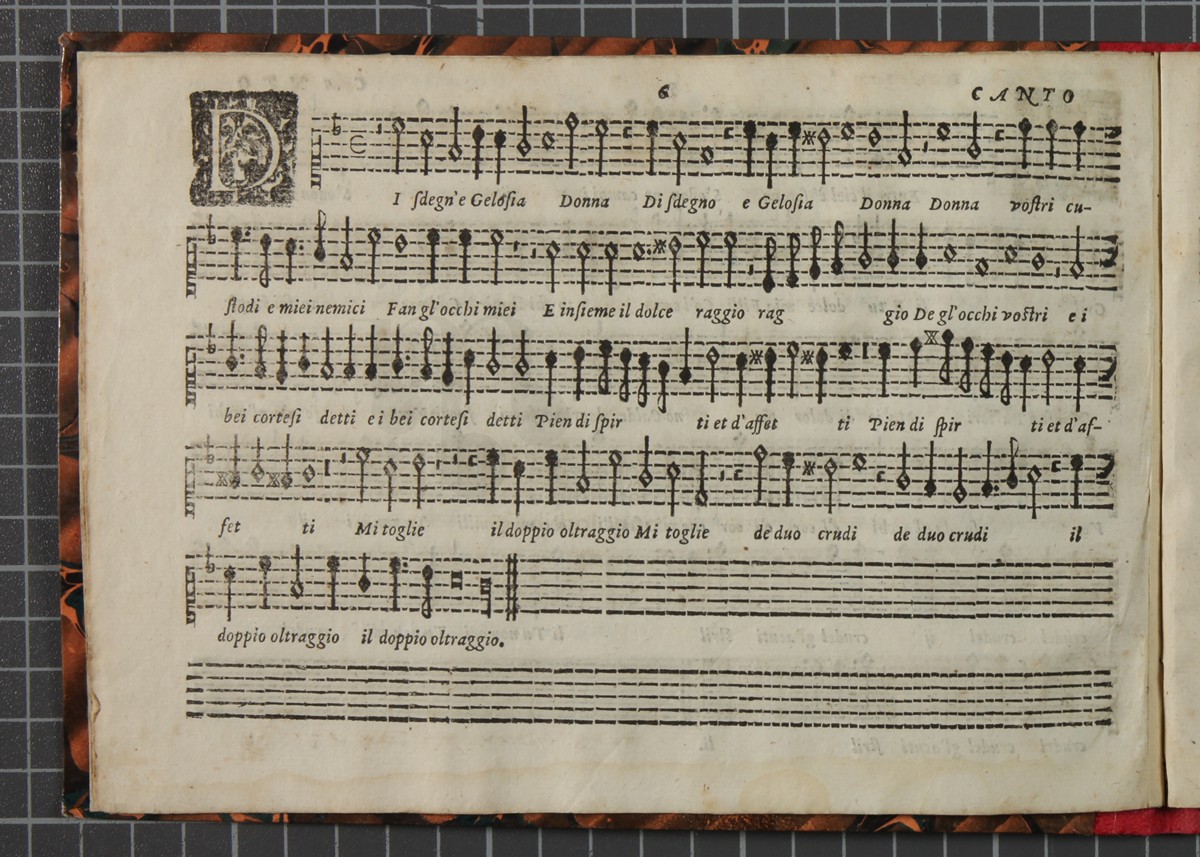 6 CANTO
DI sdegn'e Gelosia Donna Di sdegno e Gelosia Donna Donna vostri cu-
stodi e miei nemici Fan gl'occhi miei E insieme il dolce raggio rag gio De gl'occhi vostri e i
bei cortesi detti e i bei cortesi detti Pien di spir ti et d'affet ti Pien di spir ti et d'af-
fet ti Mi toglie il doppio oltraggio Mi toglie de duo crudi de duo crudi il
doppio oltraggio il doppio oltraggio.